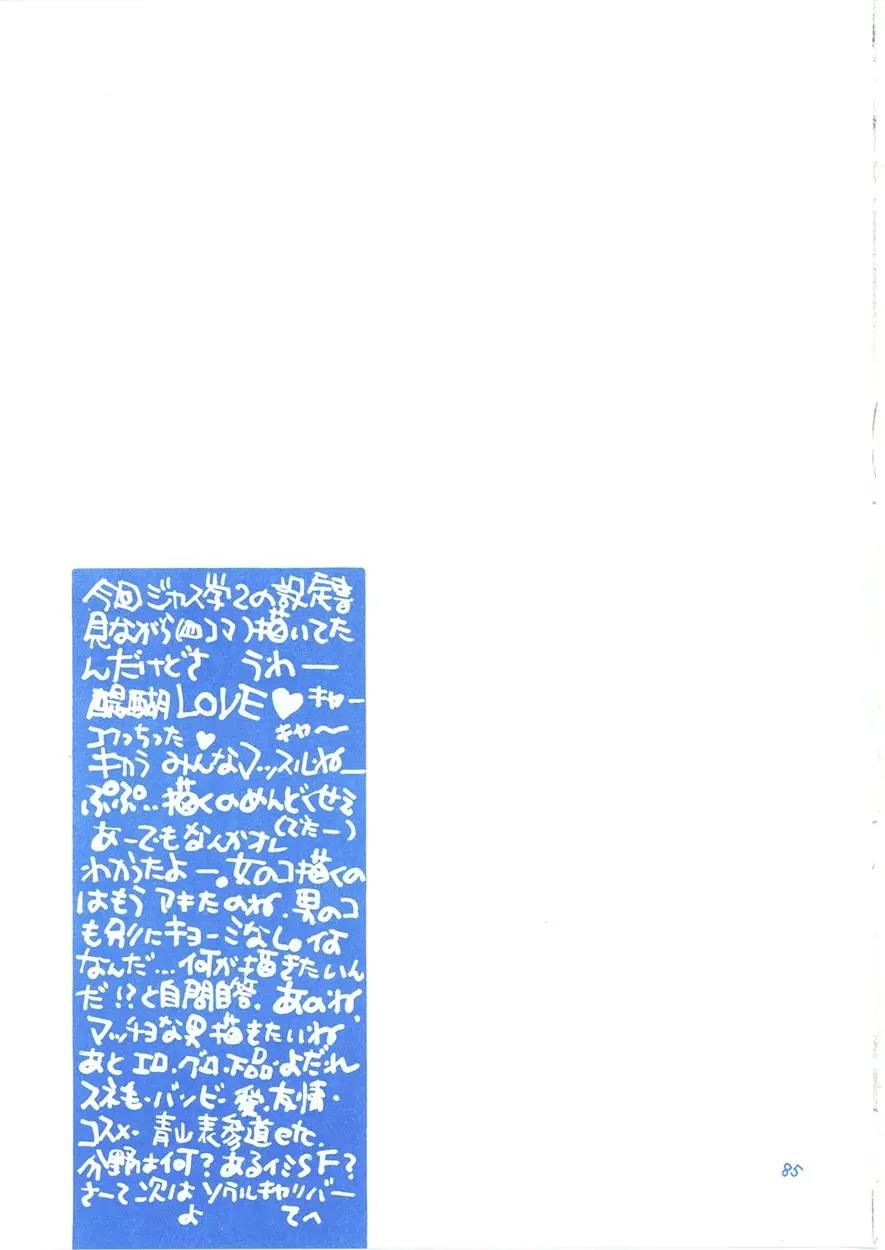 今回ジャス学2の設定書
見ながら(四コマ)描いてた
んだけどさ うわー
醍醐LOVE♥キャー
コワっちった♥ キャ〜
キカラ みんなマッスルねー
ぷぷ…描くのめんどくせえ
あーでもなんかオレ(でたー)
わかったよー。女のコ描くの
はもうアキたのね。男のコ
も別にキョーミなし。イヤ
なんだ…何が描きたいん
だ!?と自問自答。あのね、
マッチョな男描きたいね
あとエロ・グロ・下品・よだれ
スネ毛・バンビ・愛・友情・
コスメ・青山表参道etc.
分野は何?あるイミSF?
さーて次はソウルキャリバー
よ てへ
85